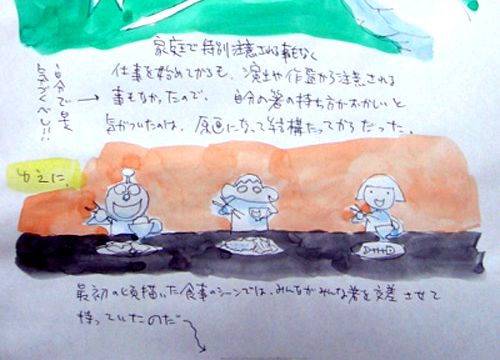 家庭で特別注意される事もなく
仕事を始めてからも、演出や作監から注意される
事もなかったので、自分の箸の持ち方がおかしいと
気がついたのは、原画になって結構たってからだった。
自分で早く
気づくべし!!
ゆえに、
最初の頃描いた食事のシーンでは、みんながみんな箸を交差させて
持っていたのだ